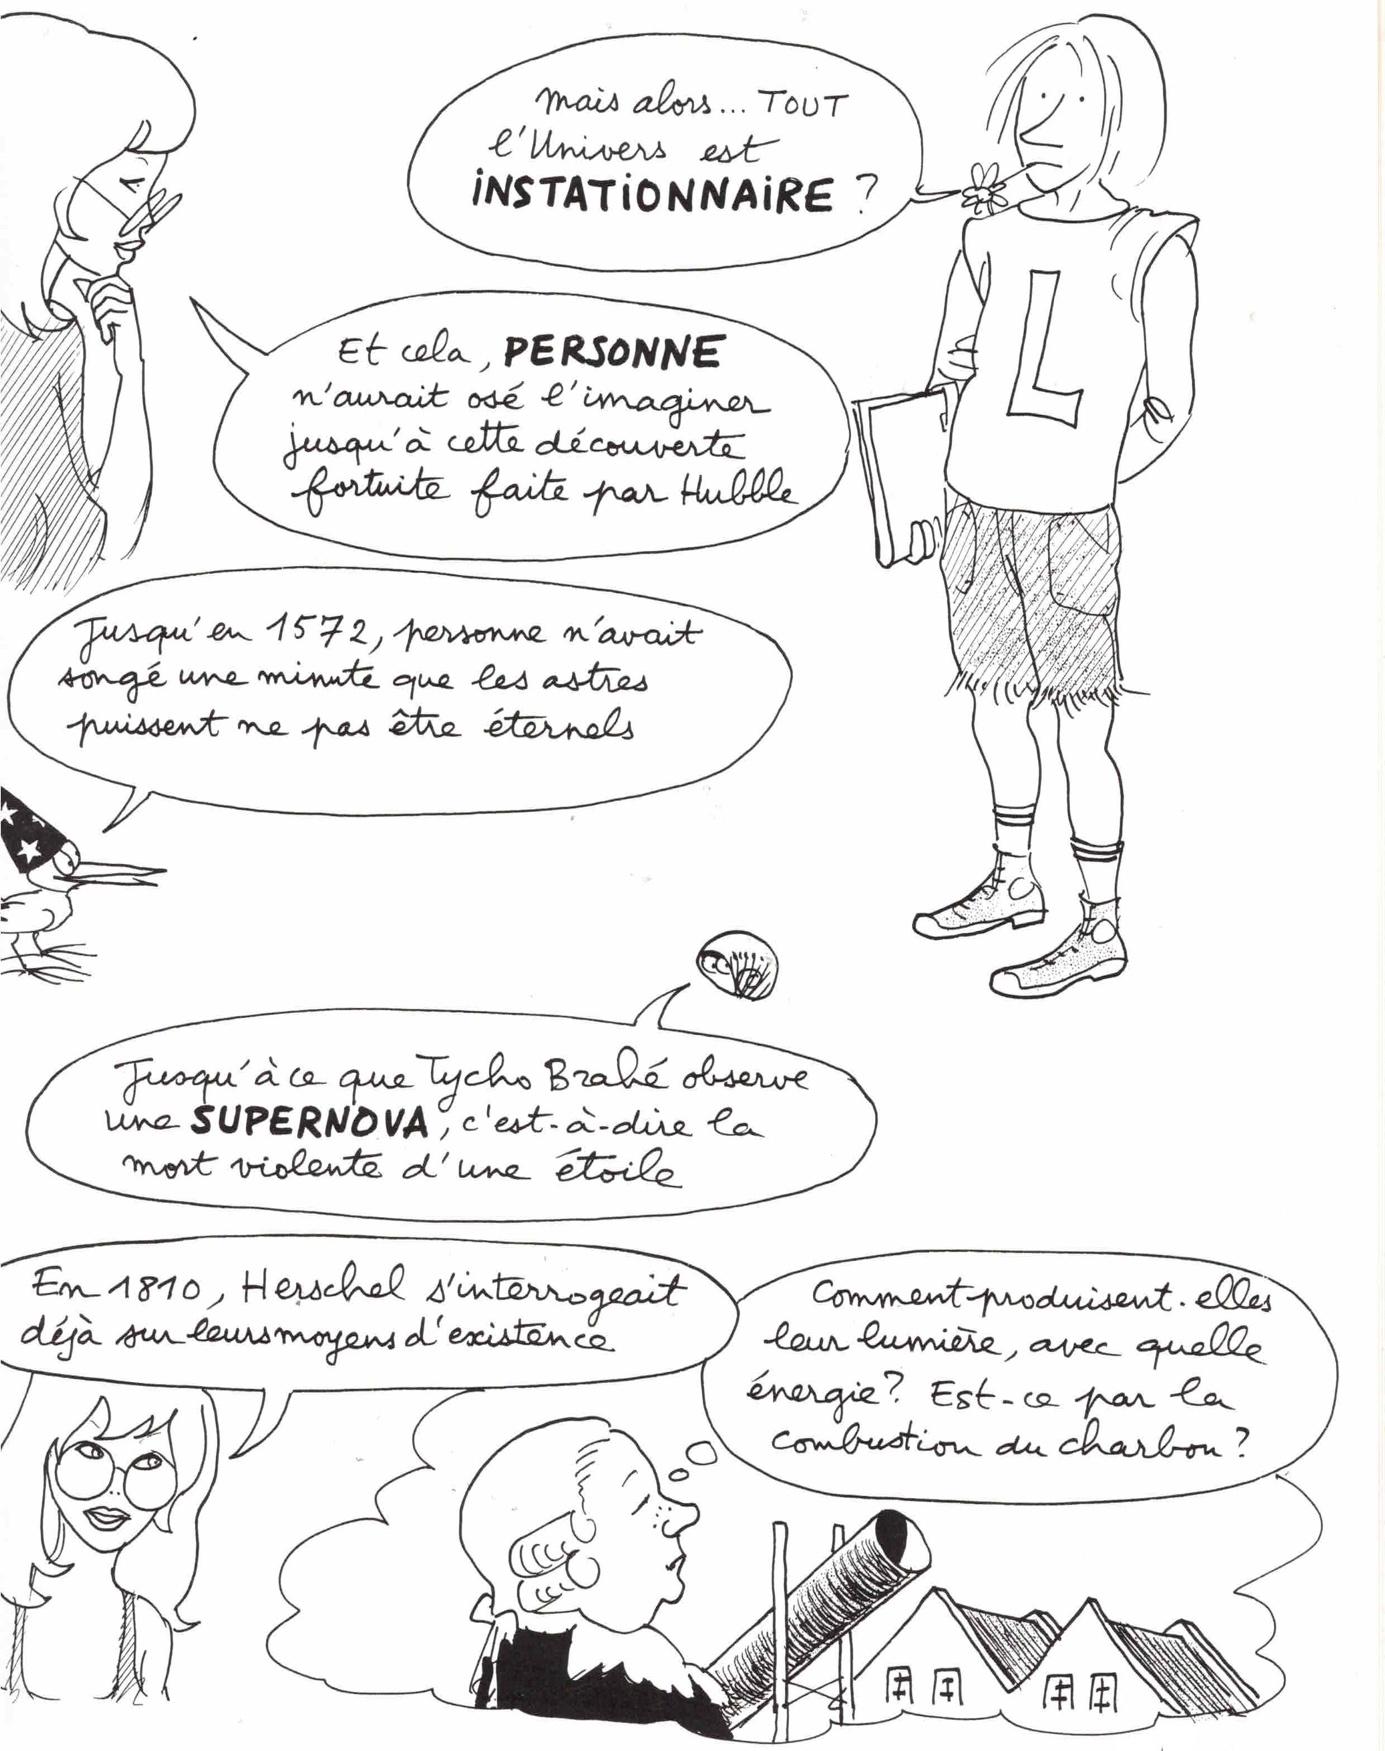 mais alors... TOUT
l'Univers est
INSTATIONNAIRE ?
L
Et cela, PERSONNE
n'aurait osé l'imaginer
jusqu'à cette découverte
fortuite faite par Hubble
Jusqu'en 1572, personne n'avait
songé une minute que les astres
puissent ne pas être éternels
Jusqu'à ce que Tycho Brahé observe
une SUPERNOVA, c'est-à-dire la
mort violente d'une étoile
En 1810, Herschel s'interrogeait
déjà sur leurs moyens d'existence
Comment produisent-elles
leur lumière, avec quelle
énergie? Est-ce par la
combustion du charbon?